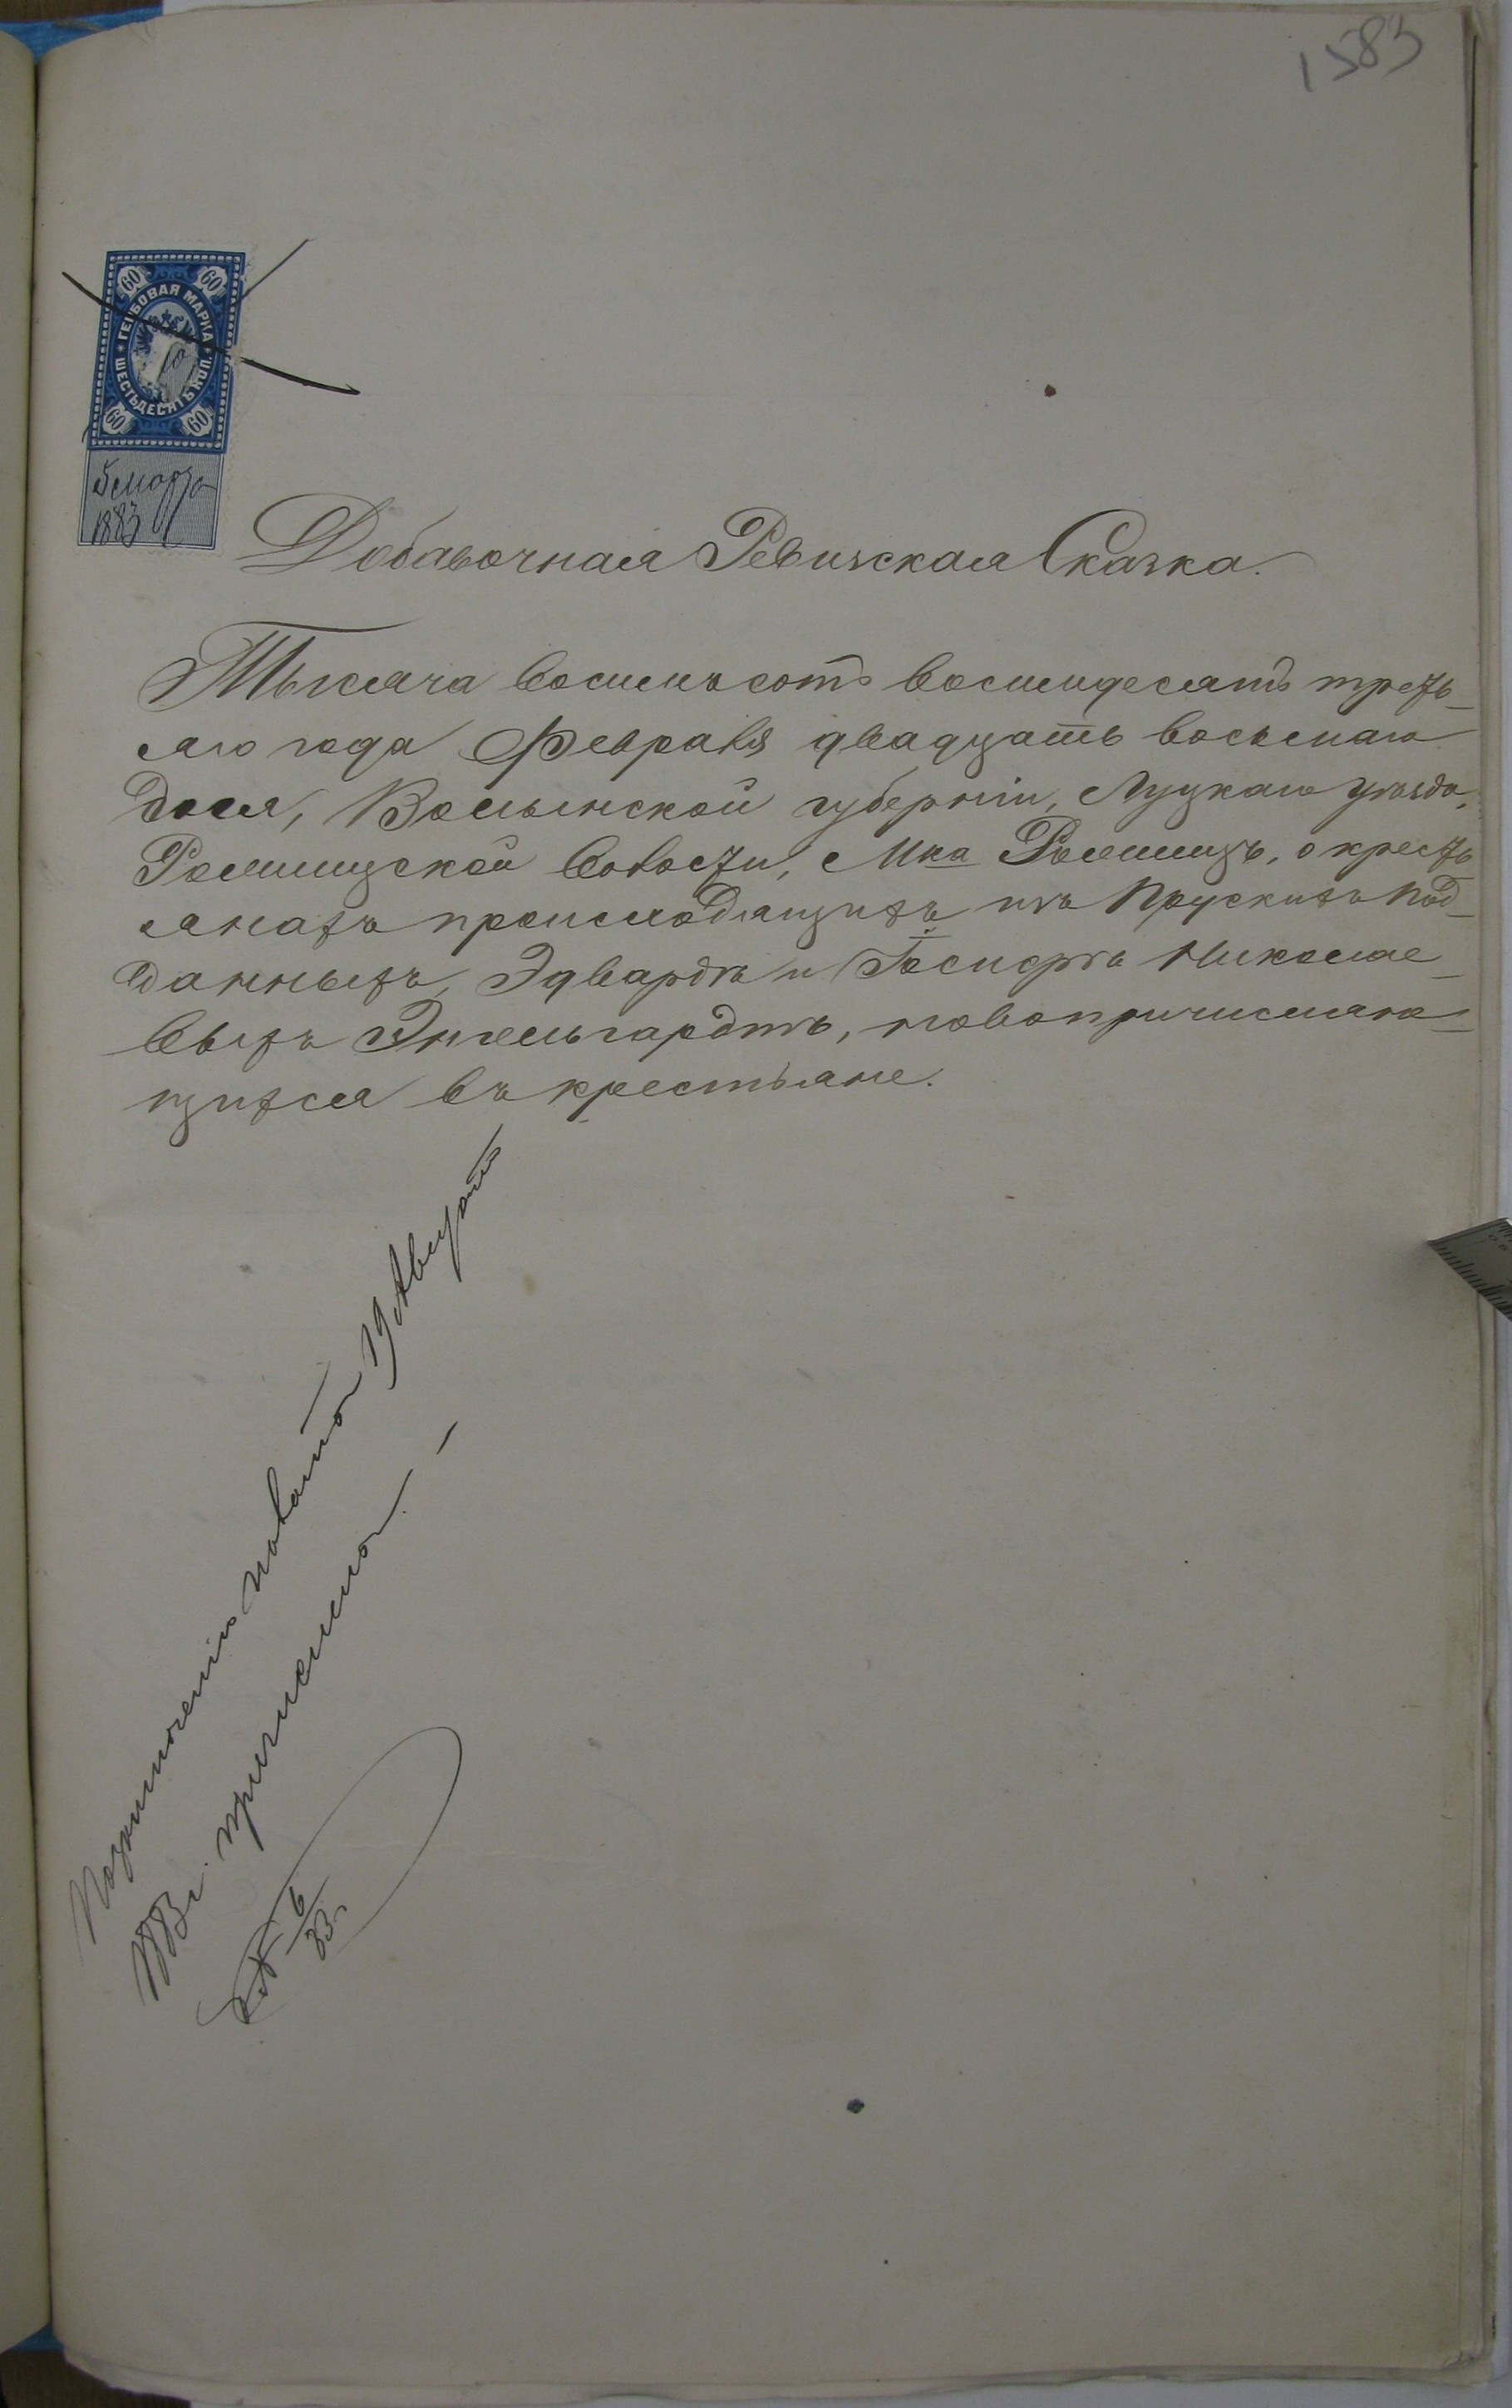 1583
60 60
ГЕРБОВАЯ МАРКА
ШЕСТЬДЕСЯТЪ КОП.
60 60
5 Марта
1883
Добавочная Ревизская Сказка.
Тысяча восемьсотъ восемдесятъ треть_
яго года Февраля двадцать восьмаго
дня, Волынской губерніи, Луцкаго уѣзда,
Рожищской волости, Мка Рожищъ, о кресть
янахъ происходящихъ изъ Прускихъ под_
данныхъ, Эдвардъ и Госифъ Николае_
выхъ Энгельгардтъ, новопричисляю_
щихся въ крестьяне.
19 Августа
причислено —
6/83